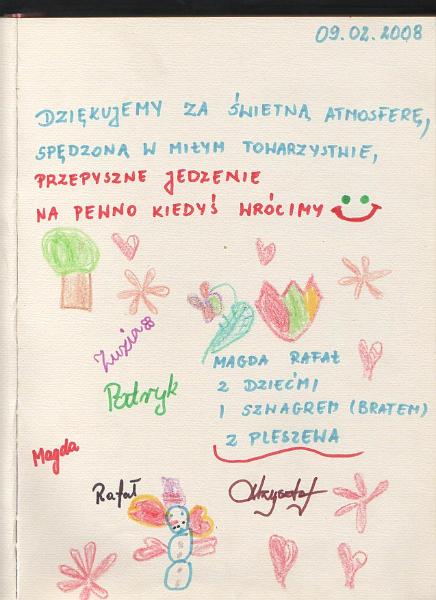 09.02.2008
DZIĘKUJEMY ZA ŚWIETNĄ ATMOSFERĘ,
SPĘDZONĄ W MIŁYM TOWARZYSTWIE,
PRZEPYSZNE JEDZENIE
NA PEWNO KIEDYŚ WRÓCIMY
Zuzia
Patryk
MAGDA RAFAŁ
Z DZIEĆMI
I SZWAGREM (BRATEM)
Z PLESZEWA
Magda
Rafał
Krzysztof